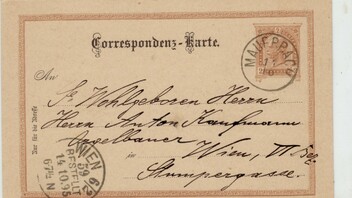 Correspondenz-Karte.
MAUERBACH
An
Sr Wohlgeboren Herrn
Herrn Anton Kaufmann
in Wien, VI Bez
Stumpergasse.
Nur für die Adresse
WIEN 6/2
BESTELLT
14.10.95